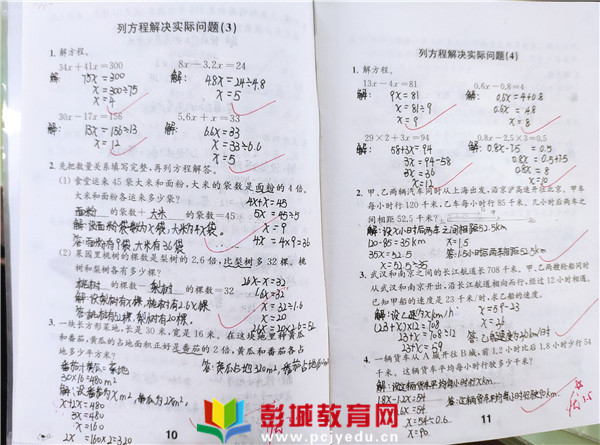 列方程解决实际问题(3)
1. 解方程。
34x+41x=300
8x-3.2x=24
解: 75x=300
解: 4.8x=24÷4.8
x=300÷75
x=5
x=4
30x-17x=156
5.6x+x=33
解: 13x=156÷13
解: 6.6x=33
x=12
x=33÷6.6
x=5
2. 先把数量关系填写完整,再列方程解答。
(1) 食堂运来45袋大米和面粉,大米的袋数是面粉的4倍。
大米和面粉各运来多少袋?
4x+x=45
面粉的袋数+大米的袋数=45
5x=45÷5
解:设面粉袋数为x袋,大米为4x袋。
x=9
答:面粉有9袋,大米有36袋
4x=4×9=36
(2) 果园里桃树的棵数是梨树的2.6倍,比梨树多32棵。桃
树和梨树各有多少棵?
桃树的棵数-梨树的棵数=32
2.6x-x=32
1.6x=32
x=32÷1.6
x=20
2.6x=20×2.6=52
3. 一块长方形菜地,长是30米,宽是16米。在这块地里种黄瓜
和番茄,黄瓜的占地面积正好是番茄的2倍,黄瓜和番茄各占
地多少平方米?
30×16=480m²
x+2x=480
3x=480
x=160
2x=160×2=320
10
列方程解决实际问题(4)
1. 解方程。
13x-4x=81
0.6x-0.8=4
解: 9x=81
解: 0.6x=4+0.8
x=81÷9
0.6x=4.8
x=9
x=8
29×2+3x=94
0.8x-2.5×3=0.5
解: 58+3x=94
解: 0.8x-7.5=0.5
3x=94-58
0.8x=0.5+7.5
3x=36
0.8x=8
x=12
x=10
2. 甲、乙两辆汽车同时从上海出发,沿京沪高速开往北京,甲车
每小时行120千米,乙车每小时行85千米。几小时后两车之
间相距52.5千米?
解:设x小时后两车之间相距52.5km
120-85=35km
x=1.5
35x=52.5
答:1.5小时后两车相距52.5km
x=52.5÷35
3. 武汉和南京之间的长江航道长708千米,甲、乙两艘轮船同时
从武汉和南京开出,沿长江航道相向而行,经过12小时相遇。
已知甲船的速度是23千米/时,求乙船的速度。
x=59-23
(23+x)×12=708
x=36
23+x=708÷12
23+x=59
4. 一辆货车从A城开往B城,前1.2小时比后1.8小时少行54
千米。这辆货车平均每小时行驶多少千米?
解:设这辆货车平均每小时行xkm。
1.8x-1.2x=54
0.6x=54
x=54÷0.6
11
彭城教育网
www.pcjyedu.cn